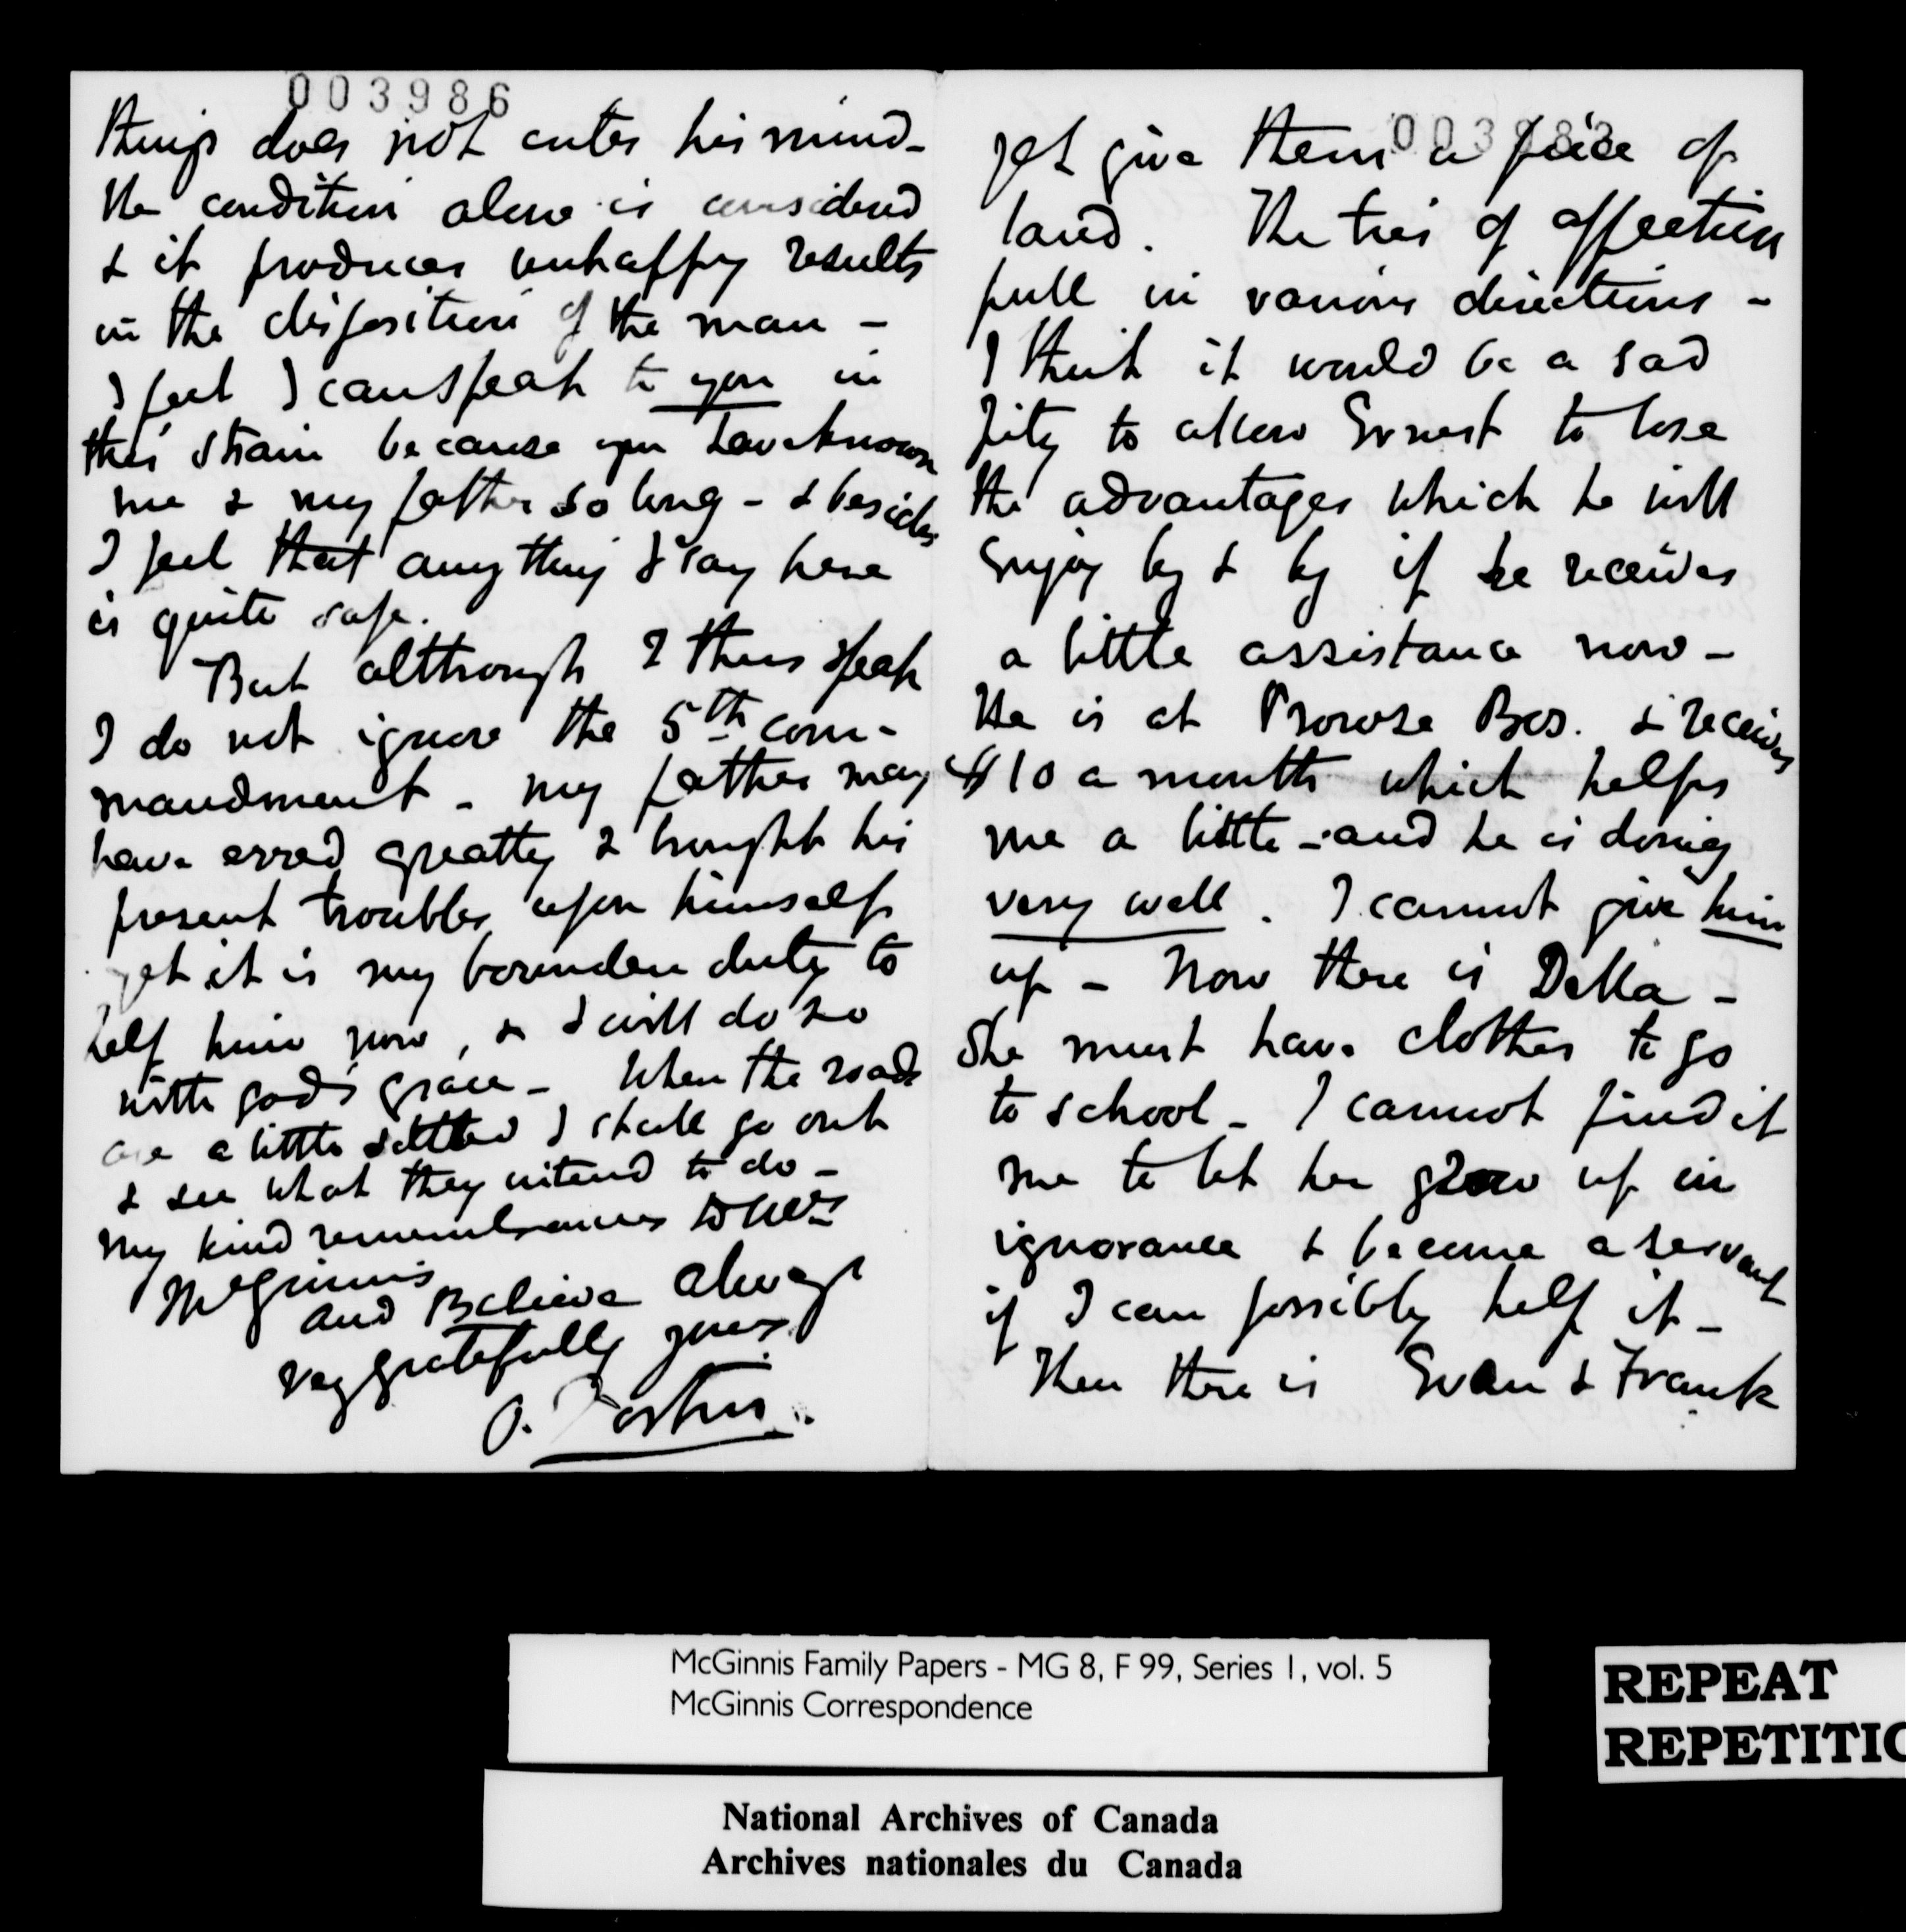 003986
things does not enter his mind-
the condition alone is considered
& it produces unhappy results
in the disposition of the man -
I feel I can speak to you in
this strain because you have known
me & my father so long - & besides
I feel that anything I say here
is quite safe.
But although I thus speak
I do not ignore the 5th com-
mandment - my father may
have erred greatly & brought his
present troubles upon himself
yet it is my bounden duty to
help him now, & I will do so
with god's grace - When the roads
are a little settled I shall go out
& see what they intend to do -
My kind remembrances to Mrs
McGinnis
and Believe always
very gratefully yours
O.
003983
yet give them a piece of
land. The ties of affection
pull in various directions -
I think it would be a sad
pity to allow Ernest to lose
the advantages which he will
enjoy by & by if he receives
a little assistance now -
He is at Prowse Bros. & receives
$10 a month which helps
me a little - and he is doing
very well. I cannot give him
up - Now there is Della -
She must have clothes to go
to school - I cannot find it
me to let her grow up in
ignorance & become a servant
if I can possibly help it -
Then there is Evan & Frank
McGinnis Family Papers - MG 8, F 99, Series 1, vol. 5
McGinnis Correspondence
REPEAT
REPETITIO
National Archives of Canada
Archives nationales du Canada